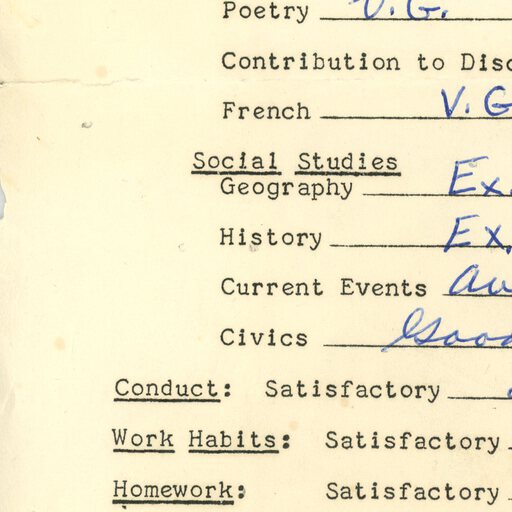 Poetry V.G.
Contribution to Disc
French V.G
Social Studies
Geography Ex.
History Ex.
Current Events av
Civics Good
Conduct: Satisfactory
Work Habits: Satisfactory
Homework: Satisfactory